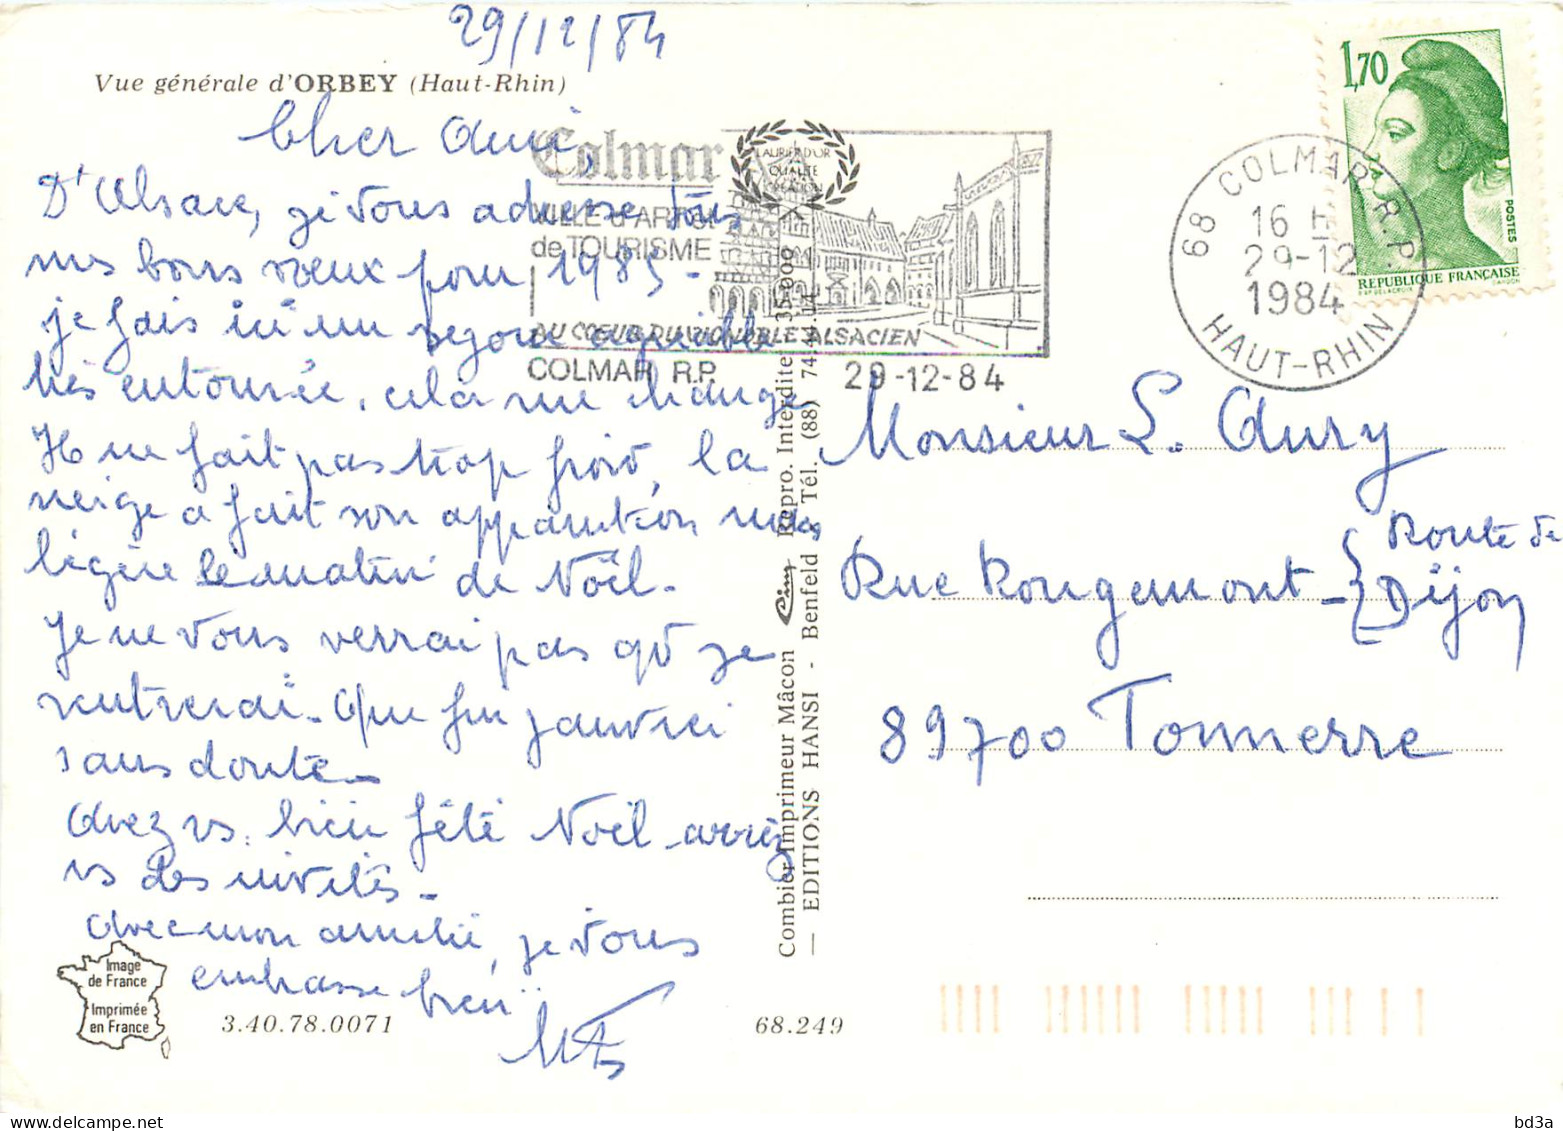 29/12/84
Vue générale d'ORBEY (Haut-Rhin)
Cher Ami,
D'Alsace, je vous adresse tous
mes bons vœux pour 1985-
je fais ici un sejour agréable
très entourée, cela me change
Il ne fait pas trop froid, la
neige a fait son apparition mais
légère le matin de Noël-
Je ne vous verrai pas qd je
rentrerai- Que fin janvier
sans doute-
Avez vs. bien fêté Noël-
vs des invités-
Avec mon amitié, je vous
embrasse bien
Image
de France
Imprimée
en France
3.40.78.0071
68.249
Colmar
LAURIER D'OR
QUALITE
CREATION
VILLE d'ART et
de TOURISME
AU CŒUR DU VIGNOBLE ALSACIEN
COLMAR R.P.
29-12-84
Combier Imprimeur Mâcon Cim Repro. Interdite
— EDITIONS HANSI - Benfeld Tél. (88) 74.41.14
68 COLMAR R.P.
16 H
29-12
1984
HAUT-RHIN
1,70
POSTES
REPUBLIQUE FRANÇAISE
D'AP. DELACROIX GANDON
Monsieur L. Aury
Rue Rougemont - { Route de
Dijon
89700 Tonnerre
bd3a